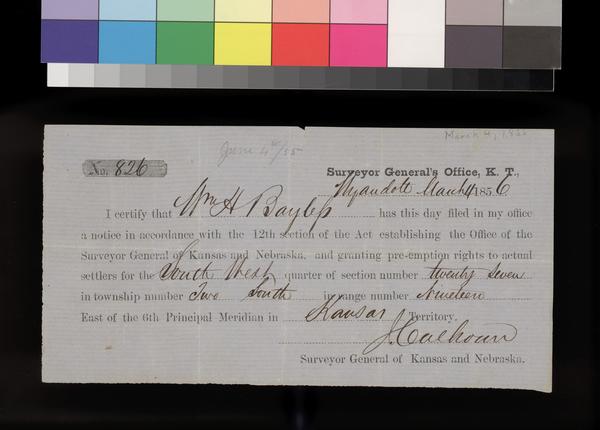 March 4, 1856
June 4th/55
No. 826
Surveyor General's Office, K. T.,
Wyandott March 4 1856.
I certify that Wm H Bayless has this day filed in my office
a notice in accordance with the 12th section of the Act establishing the Office of the
Surveyor General of Kansas and Nebraska, and granting pre-emption rights to actual
settlers for the South West quarter of section number twenty seven
in township number Two South in range number Nineteen
East of the 6th Principal Meridian in Kansas Territory.
J Calhoun
Surveyor General of Kansas and Nebraska.